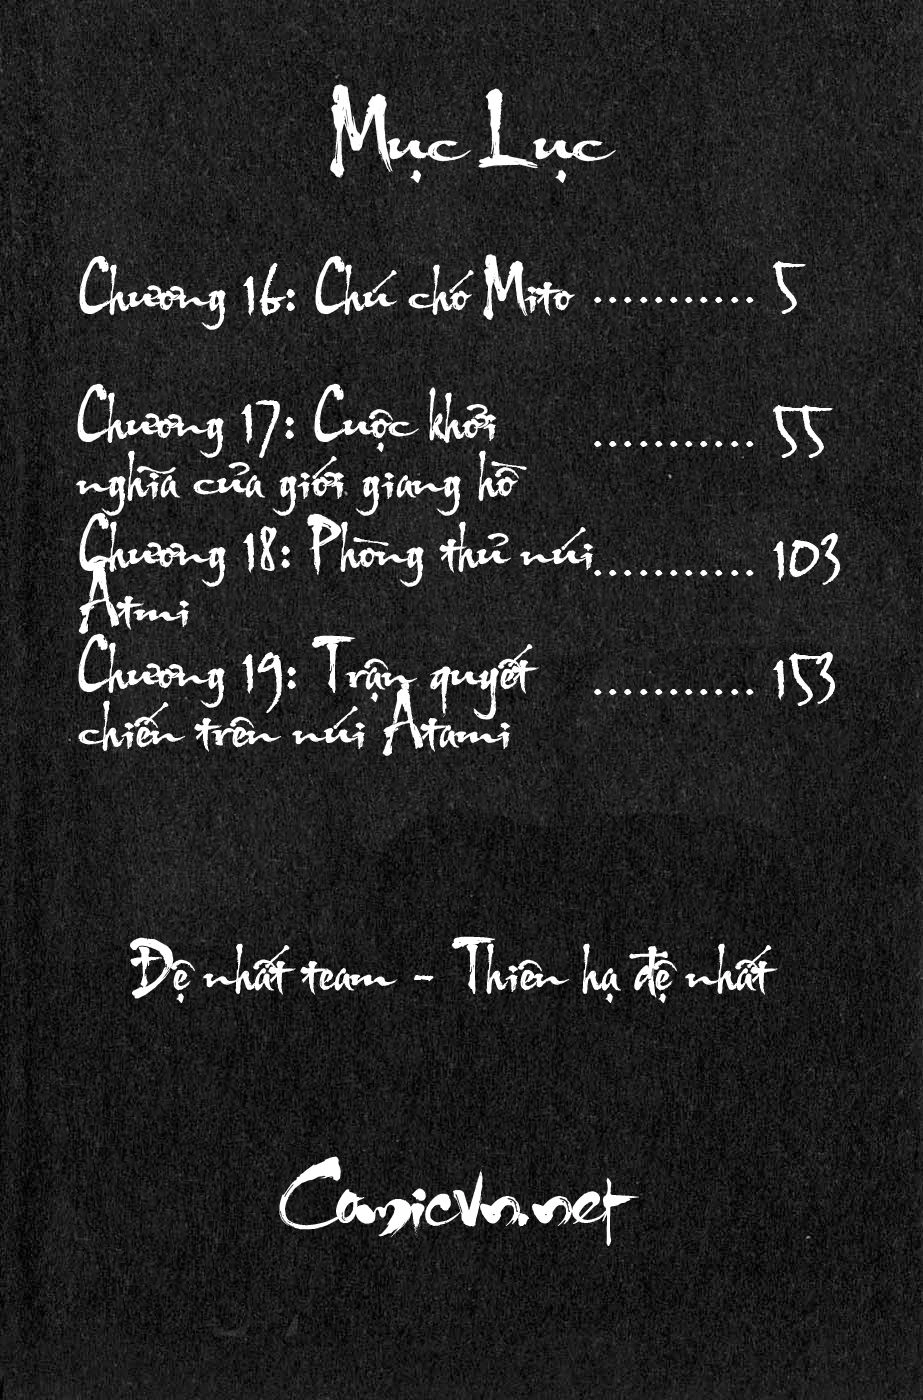 Mục Lục
Chương 16: Chú chó Mito ........... 5
Chương 17: Cuộc khởi ........... 55
nghĩa của giới giang hồ
Chương 18: Phòng thủ núi ........... 103
Atmi
Chương 19: Trận quyết ........... 153
chiến trên núi Atami
Đệ nhất team - Thiên hạ đệ nhất
Comicvn.net